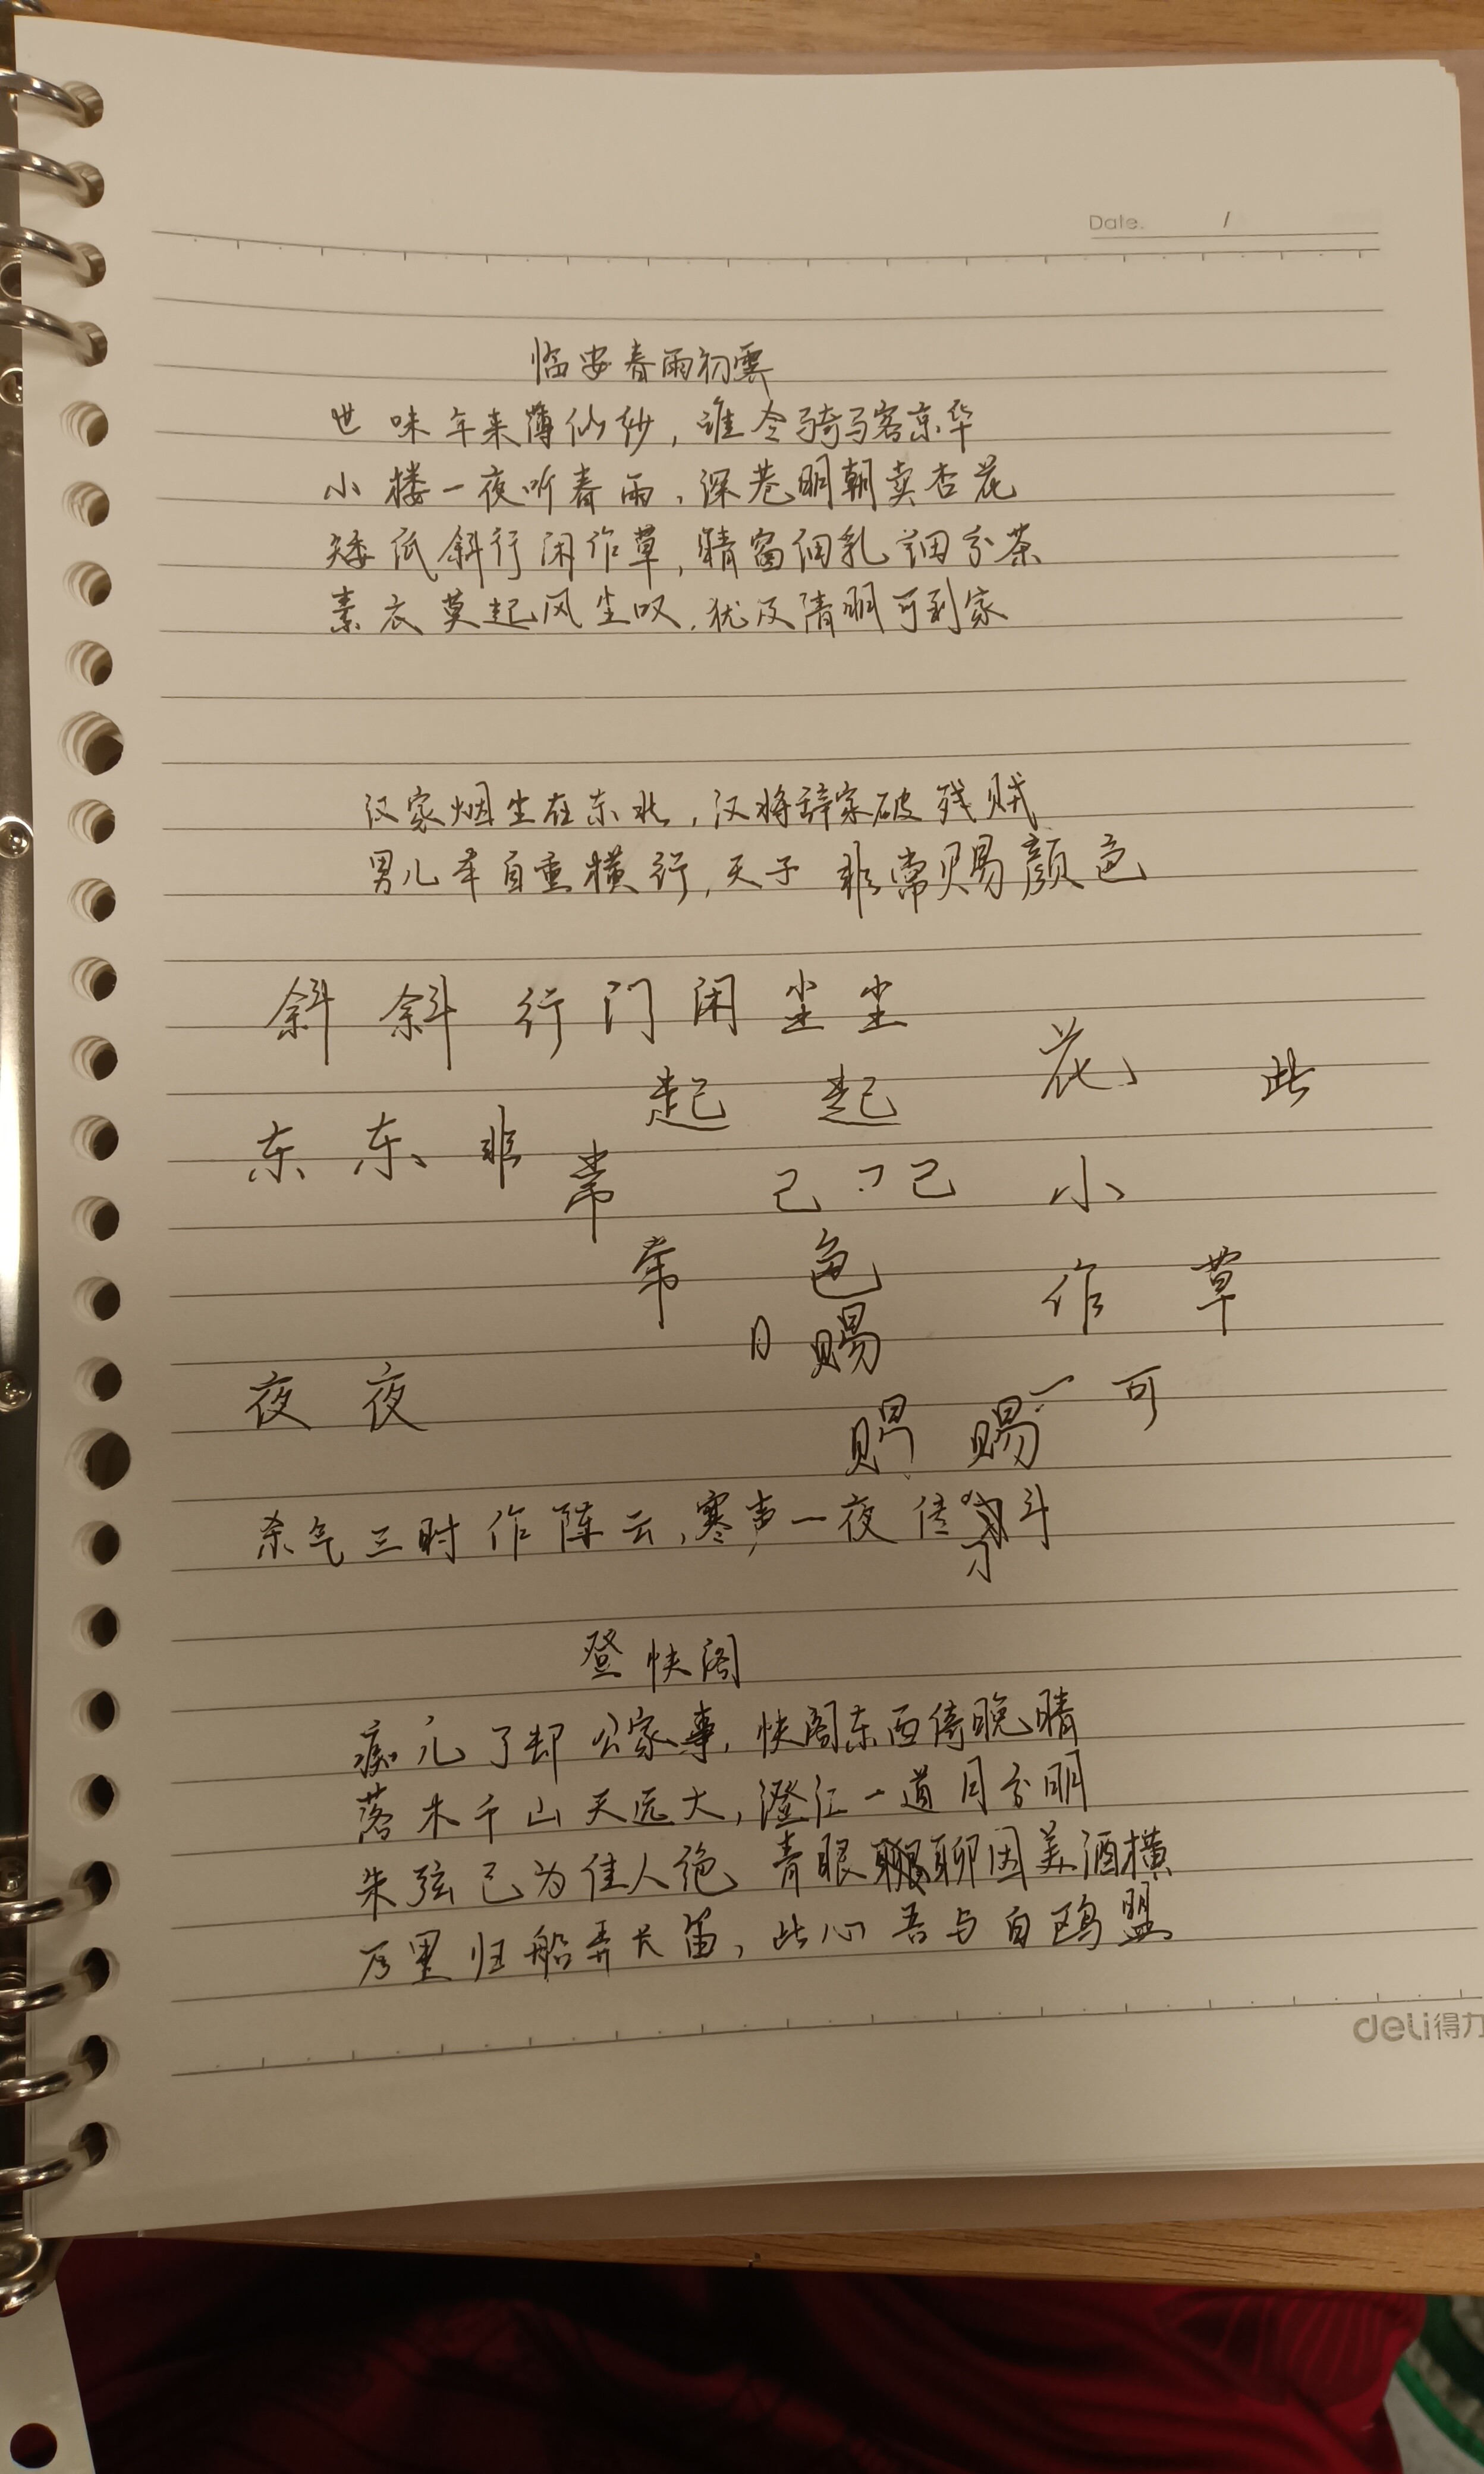 Date. /
临安春雨初霁
世味年来薄似纱，谁令骑马客京华
小楼一夜听春雨，深巷明朝卖杏花
矮纸斜行闲作草，晴窗细乳细分茶
素衣莫起风尘叹，犹及清明可到家
汉家烟尘在东北，汉将辞家破残贼
男儿本自重横行，天子非常赐颜色
斜 斜 行 门 闲 尘 尘
起 起 花 此
东 东 非 常 己 己 小
常 色 作 草
日 赐
夜 夜 赐 可
杀气三时作阵云，寒声一夜传刁斗
登快阁
痴儿了却公家事，快阁东西倚晚晴
落木千山天远大，澄江一道月分明
朱弦已为佳人绝，青眼聊因美酒横
万里归船弄长笛，此心吾与白鸥盟
deli得力